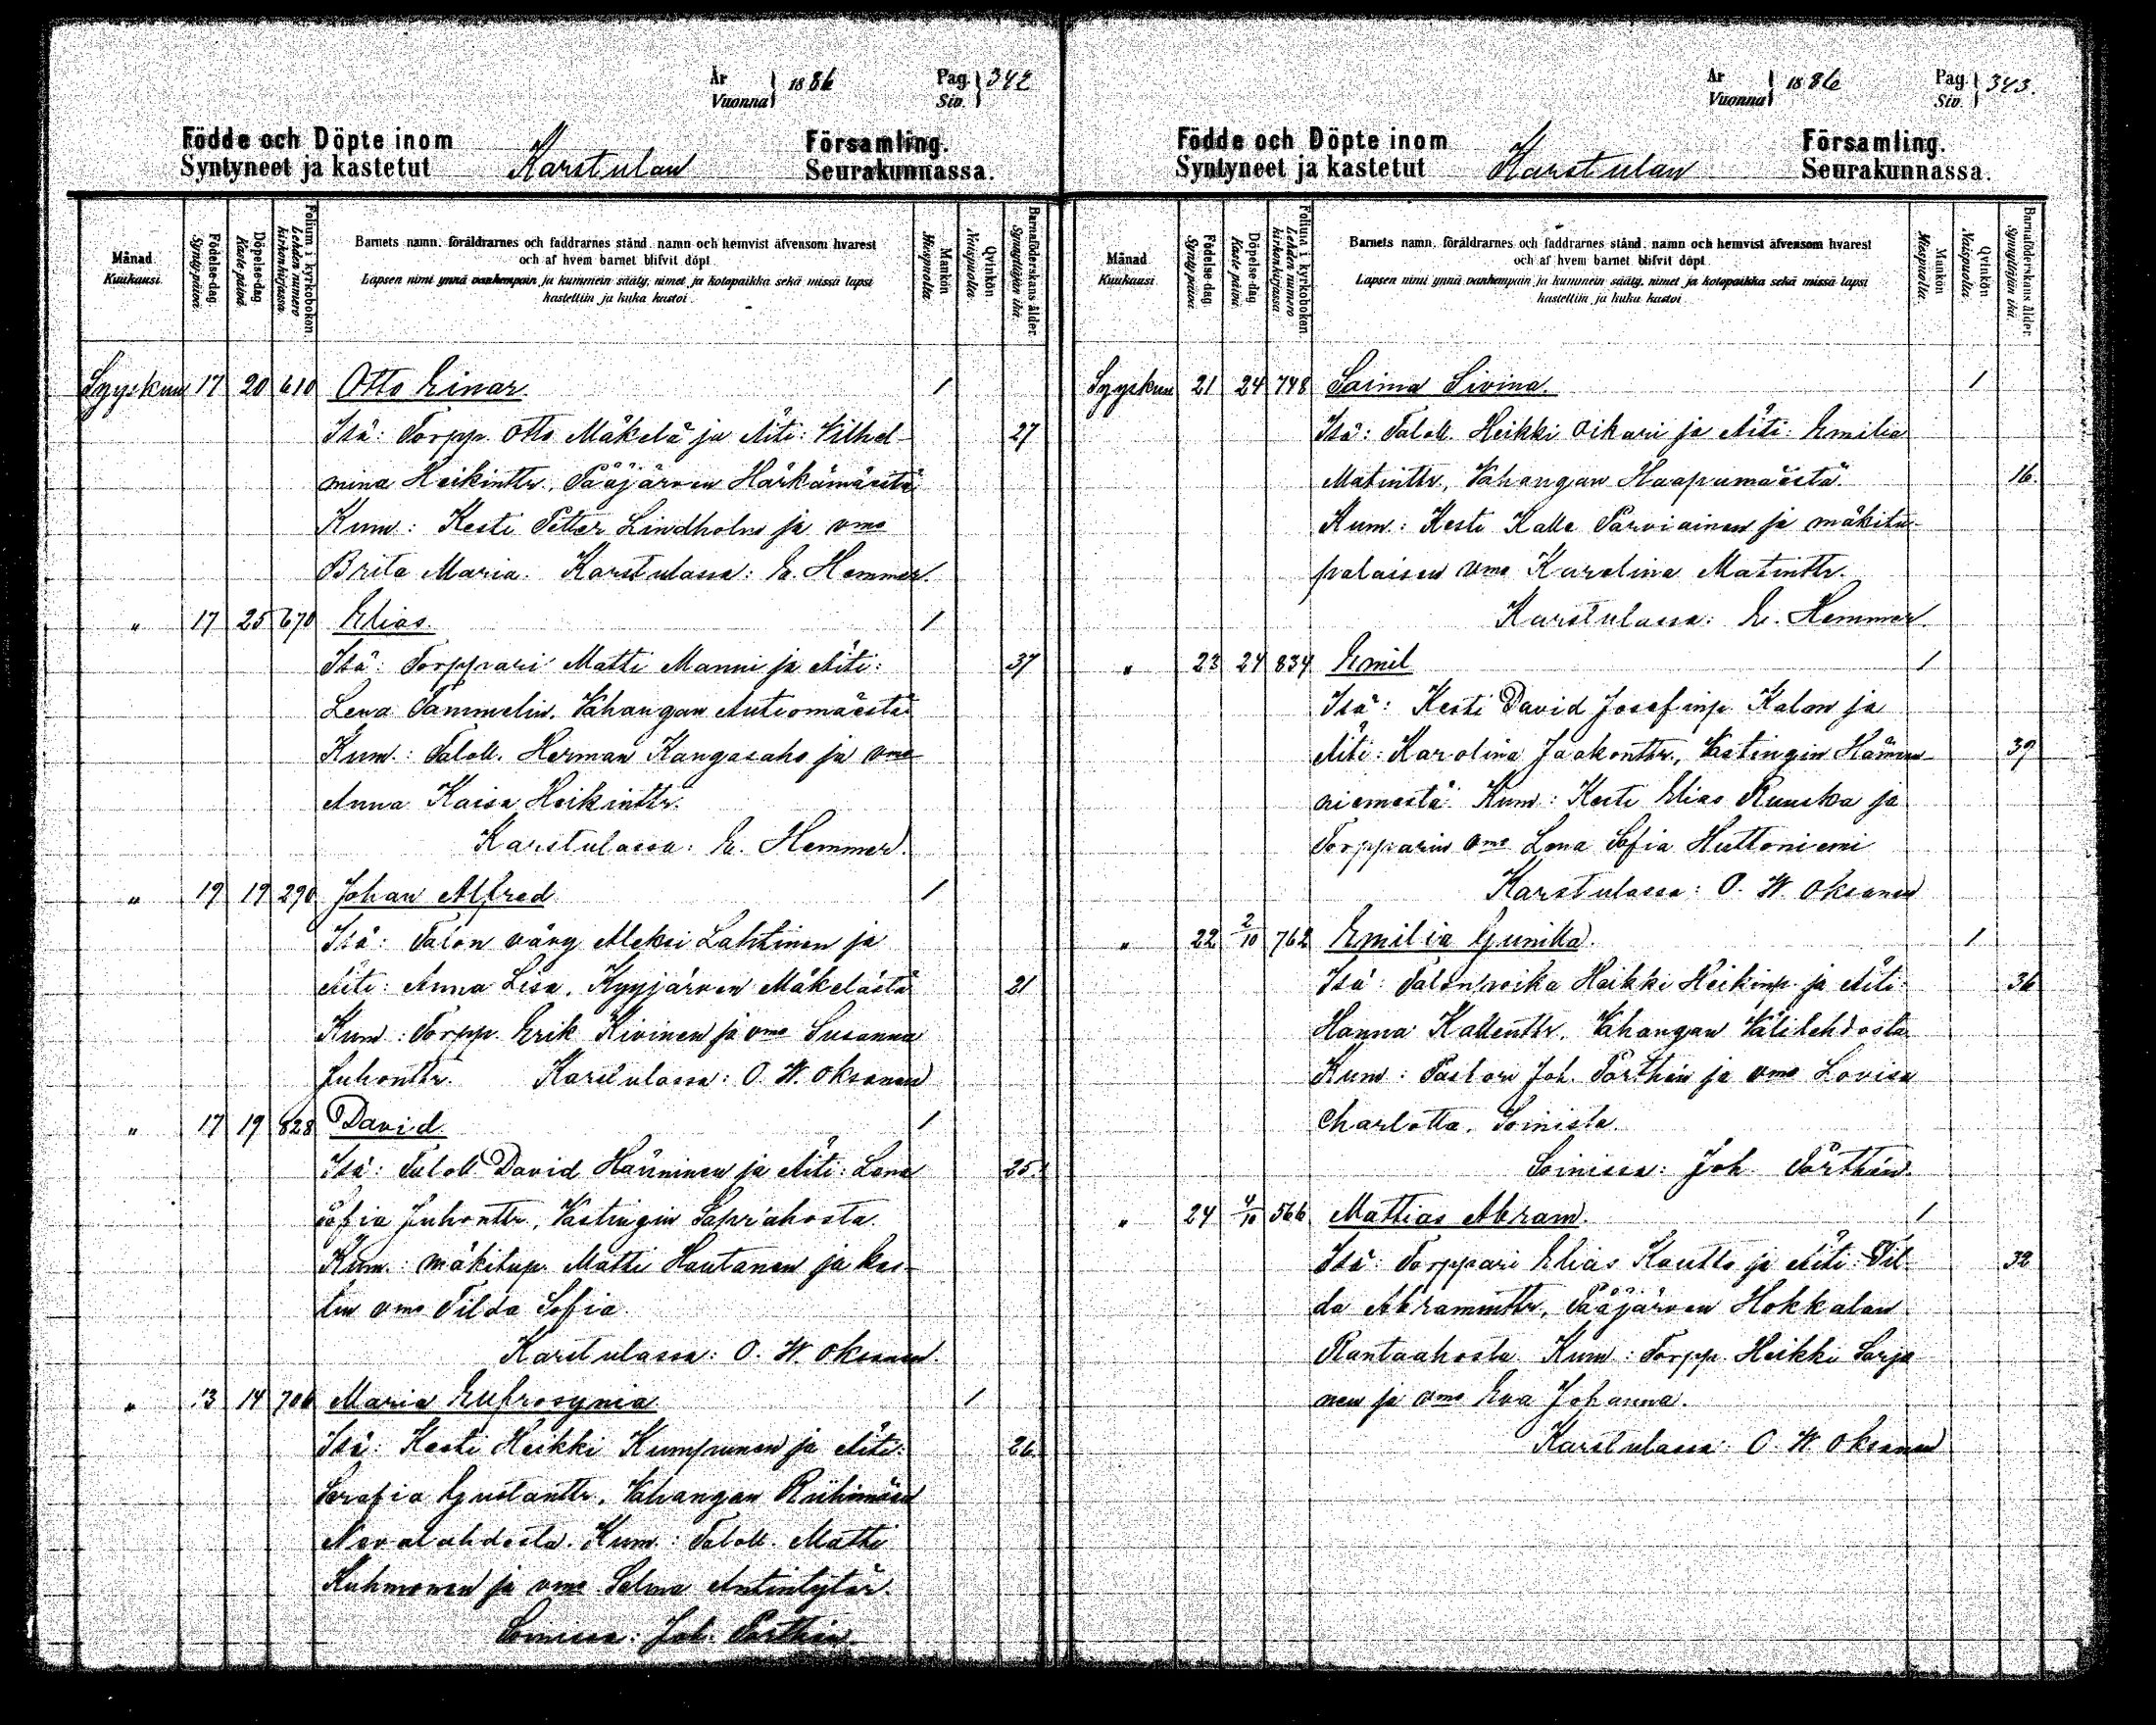 År
Vuonna 1886
Pag.
Siv. 342
Födde och Döpte inom
Syntyneet ja kastetut
Karstulan
Församling.
Seurakunnassa.
Månad.
Kuukausi.
Födelse-dag.
Synty-päivä.
Döpelse-dag.
Kaste-päivä.
Folium i kyrkoboken.
Lehden numero kirkonkirjassa.
Barnets namn, föräldrarnes och faddrarnes stånd, namn och hemvist äfvensom hvarest
och af hvem barnet blifvit döpt.
Lapsen nimi ynnä vanhempain ja kummein sääty, nimet ja kotopaikka sekä missä lapsi
kastettiin ja kuka kastoi.
Mankön
Miespuolia.
Qvinkön
Naispuolia.
Barnaföderskans ålder.
Synnyttäjän ikä.
Syyskuu 17 20 610 Otto Einar. 1
Isä: Torpp. Otto Mäkelä ja Äiti: Vilhel- 27
mina Heikintr., Pääjärven Härkämäestä
Kum: Kesti Petter Lindholm ja vmo
Brita Maria. Karstulassa: E. Hemmer.
" 17 25 670 Elias. 1
Isä: Torppari Matti Manni ja Äiti: 37
Lena Tammelin, Vahangan Autiomäestä
Kum.: Taloll. Herman Kangasaho ja vmo
Anna Kaisa Heikinttr.
Karstulassa: E. Hemmer.
" 19 19 290 Johan Alfred 1
Isä: Talon vävy Aleksi Lahtinen ja
Äiti: Anna Lisa, Kyyjärven Mäkelästä 21
Kum: Torpp. Erik Kivinen ja vmo Susanna
Juhonttr. Karstulassa: O. W. Oksanen
" 17 19 828 David 1
Isä: Taloll. David Hänninen ja Äiti: Lena 25.
Sofia Juhonttr, Vastingin
Kum.: mäkitup. Matti Hautanen ja kes-
tin vmo Tilda Sofia.
Karstulassa: O. W. Oksanen.
" 13 14 706 Maria Eufrosynia 1
Isä: Kesti Heikki Kumpunen ja Äiti: 26.
Serafia Gustanttr. Vahangan Riihimäen
Nevalahdesta. Kum.: Taloll. Matti
Kuhmonen ja vmo Selma Antintytär.
Soinissa: Joh. Porthén
År
Vuonna 1886
Pag.
Siv. 343.
Födde och Döpte inom
Syntyneet ja kastetut
Karstulan
Församling.
Seurakunnassa.
Månad
Kuukausi.
Födelse-dag.
Synty-päivä.
Döpelse-dag.
Kaste-päivä.
Folium i kyrkoboken.
Lehden numero kirkonkirjassa
Barnets namn, föräldrarnes och faddrarnes stånd, namn och hemvist äfvensom hvarest
och af hvem barnet blifvit döpt.
Lapsen nimi ynnä vanhempain ja kummein sääty, nimet ja kotopaikka sekä missä lapsi
kastettiin ja kuka kastoi.
Mankön
Miespuolia.
Qvinkön
Naispuolia.
Barnaföderskans ålder.
Synnyttäjän ikä.
Syyskuu 21 24 748 Saima Sivina. 1
Isä: Taloll. Heikki Oikari ja Äiti: Emilia
Matinttr, Vahangan Haapamäestä 16.
Kum.: Kesti Kalle Parviainen ja mäkitu-
palaisen vmo Karolina Matinttr.
Karstulassa: E. Hemmer.
" 23 24 834 Emil 1
Isä: Kesti David Josefinp. Kalon ja
Äiti: Karolina Jaakonttr., Vastingin Hämeen- 39
niemestä. Kum: Kesti Elias Ruuska ja
Torpparin vmo Lena Sofia Huttoniemi
Karstulassa: O. W. Oksanen
" 22 2/10 762 Emilia Gunilla. 1
Isä: Talonpoika Heikki Heikinp. ja Äiti: 36
Hanna Kallenttr. Vahangan Välilehdosta
Kum: Pastori Joh. Porthén ja vmo Lovisa
Charlotta, Soinista.
Soinissa: Joh Porthén.
" 24 4/10 566 Mattias Abram. 1
Isä: Torppari Elias Kautto ja Äiti: Til- 32
da Abraminttr, Pääjärven Hokkalan
Rantaahosta Kum: Torpp. Heikki Sarja
nen ja vmo Eva Johanna.
Karstulassa: O. W. Oksanen